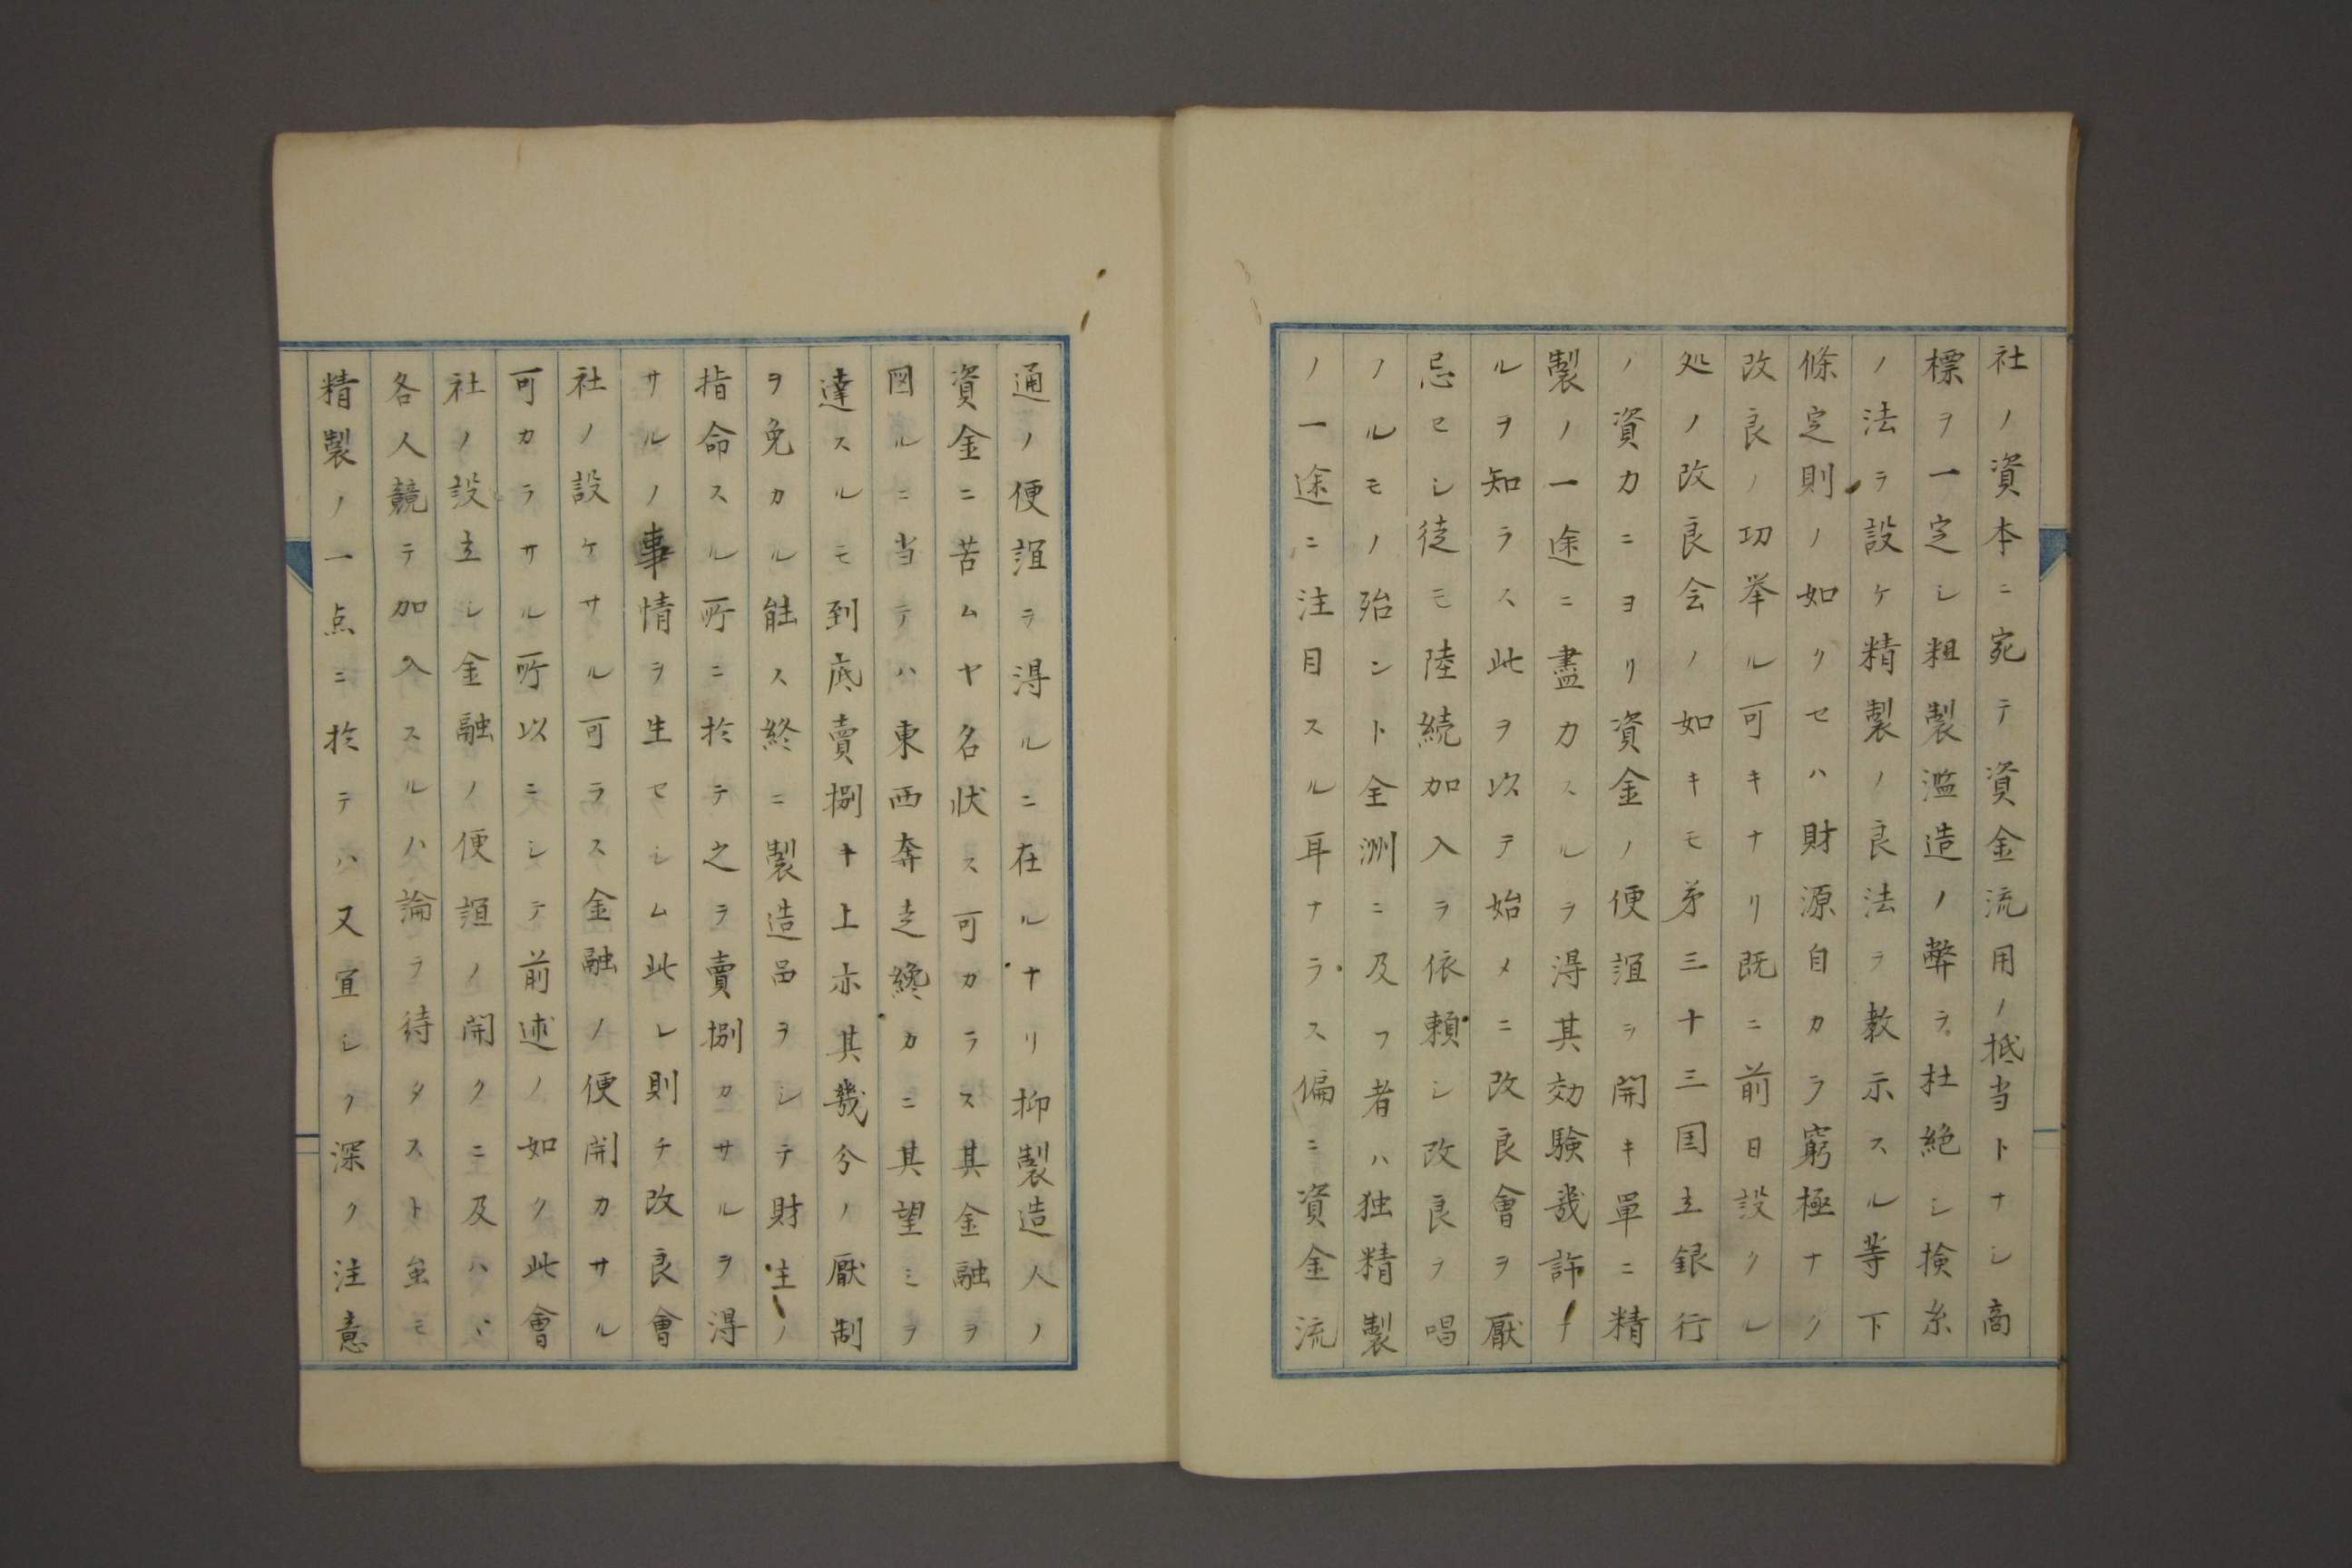 社ノ資本ニ宛テ資金流用ノ抵当トナシ商
標ヲ一定シ粗製濫造ノ弊ヲ杜絶シ検糸
ノ法ヲ設ケ精製ノ良法ヲ教示スル等下
條定則ノ如クセハ財源自カラ窮極ナク
改良ノ功挙ル可キナリ既ニ前日設クル
処ノ改良会ノ如キモ第三十三国立銀行
ノ資力ニヨリ資金ノ便誼ヲ開キ單ニ精
製ノ一途ニ盡力スルヲ得其効験幾許ナ
ルヲ知ラス此ヲ以テ始メニ改良會ヲ厭
忌セシ徒モ陸続加入ヲ依頼シ改良ヲ唱
フルモノ殆ント全洲ニ及フ者ハ独精製
ノ一途ニ注目スル耳ナラス偏ニ資金流
通ノ便誼ヲ得ルニ在ルナリ抑製造人ノ
資金ニ苦ムヤ名状ス可カラス其金融ヲ
図ルニ当テハ東西奔走纔カニ其望ミヲ
達スルモ到底賣捌キ上亦其幾分ノ厭制
ヲ免カル能ス終ニ製造品ヲシテ財主ノ
指命スル所ニ於テ之ヲ賣捌カサルヲ得
サルノ事情ヲ生セシム此レ則チ改良會
社ノ設ケサル可ラス金融ノ便開カサル
可カラサル所以ニシテ前述ノ如ク此會
社ノ設立シ金融ノ便誼ノ開クニ及ハヾ
各人競テ加入スルハ論ヲ待タスト虽モ
精製ノ一点ニ於テハ又宜シク深ク注意